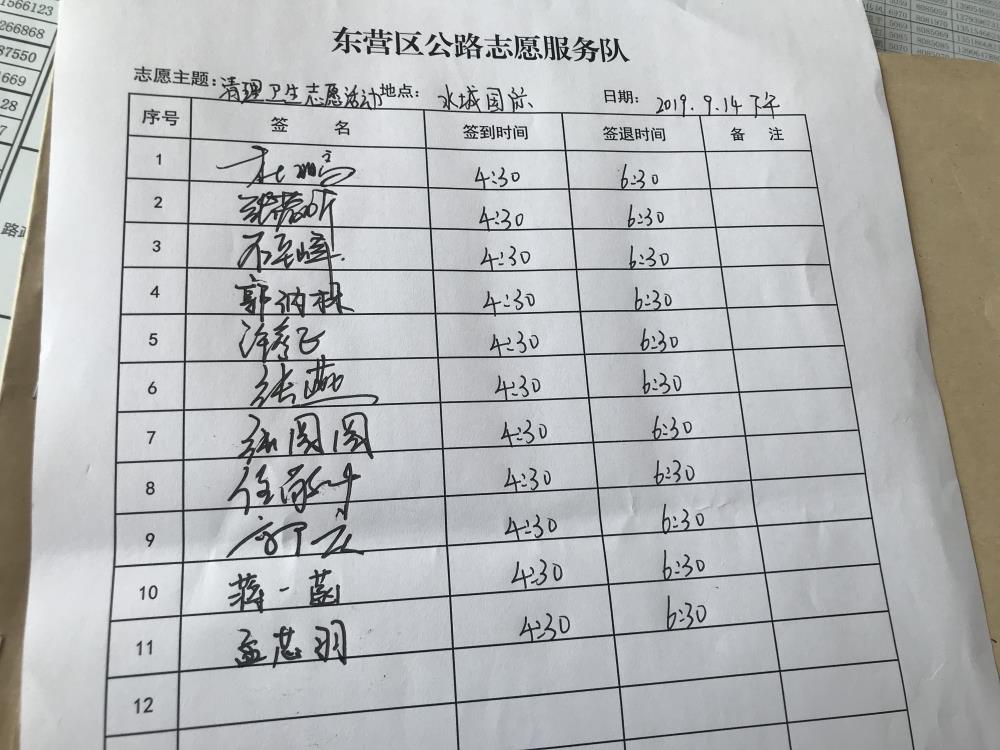 东营区公路志愿服务队
志愿主题：清理卫生志愿活动 地点：水城国际 日期：2019.9.14下午
序号 签 名 签到时间 签退时间 备 注
1 4:30 6:30
2 4:30 6:30
3 4:30 6:30
4 4:30 6:30
5 4:30 6:30
6 张燕 4:30 6:30
7 张圆圆 4:30 6:30
8 4:30 6:30
9 4:30 6:30
10 蒋一菡 4:30 6:30
11 孟芯羽 4:30 6:30
12
1566123
266868
87550
1669
128
路政